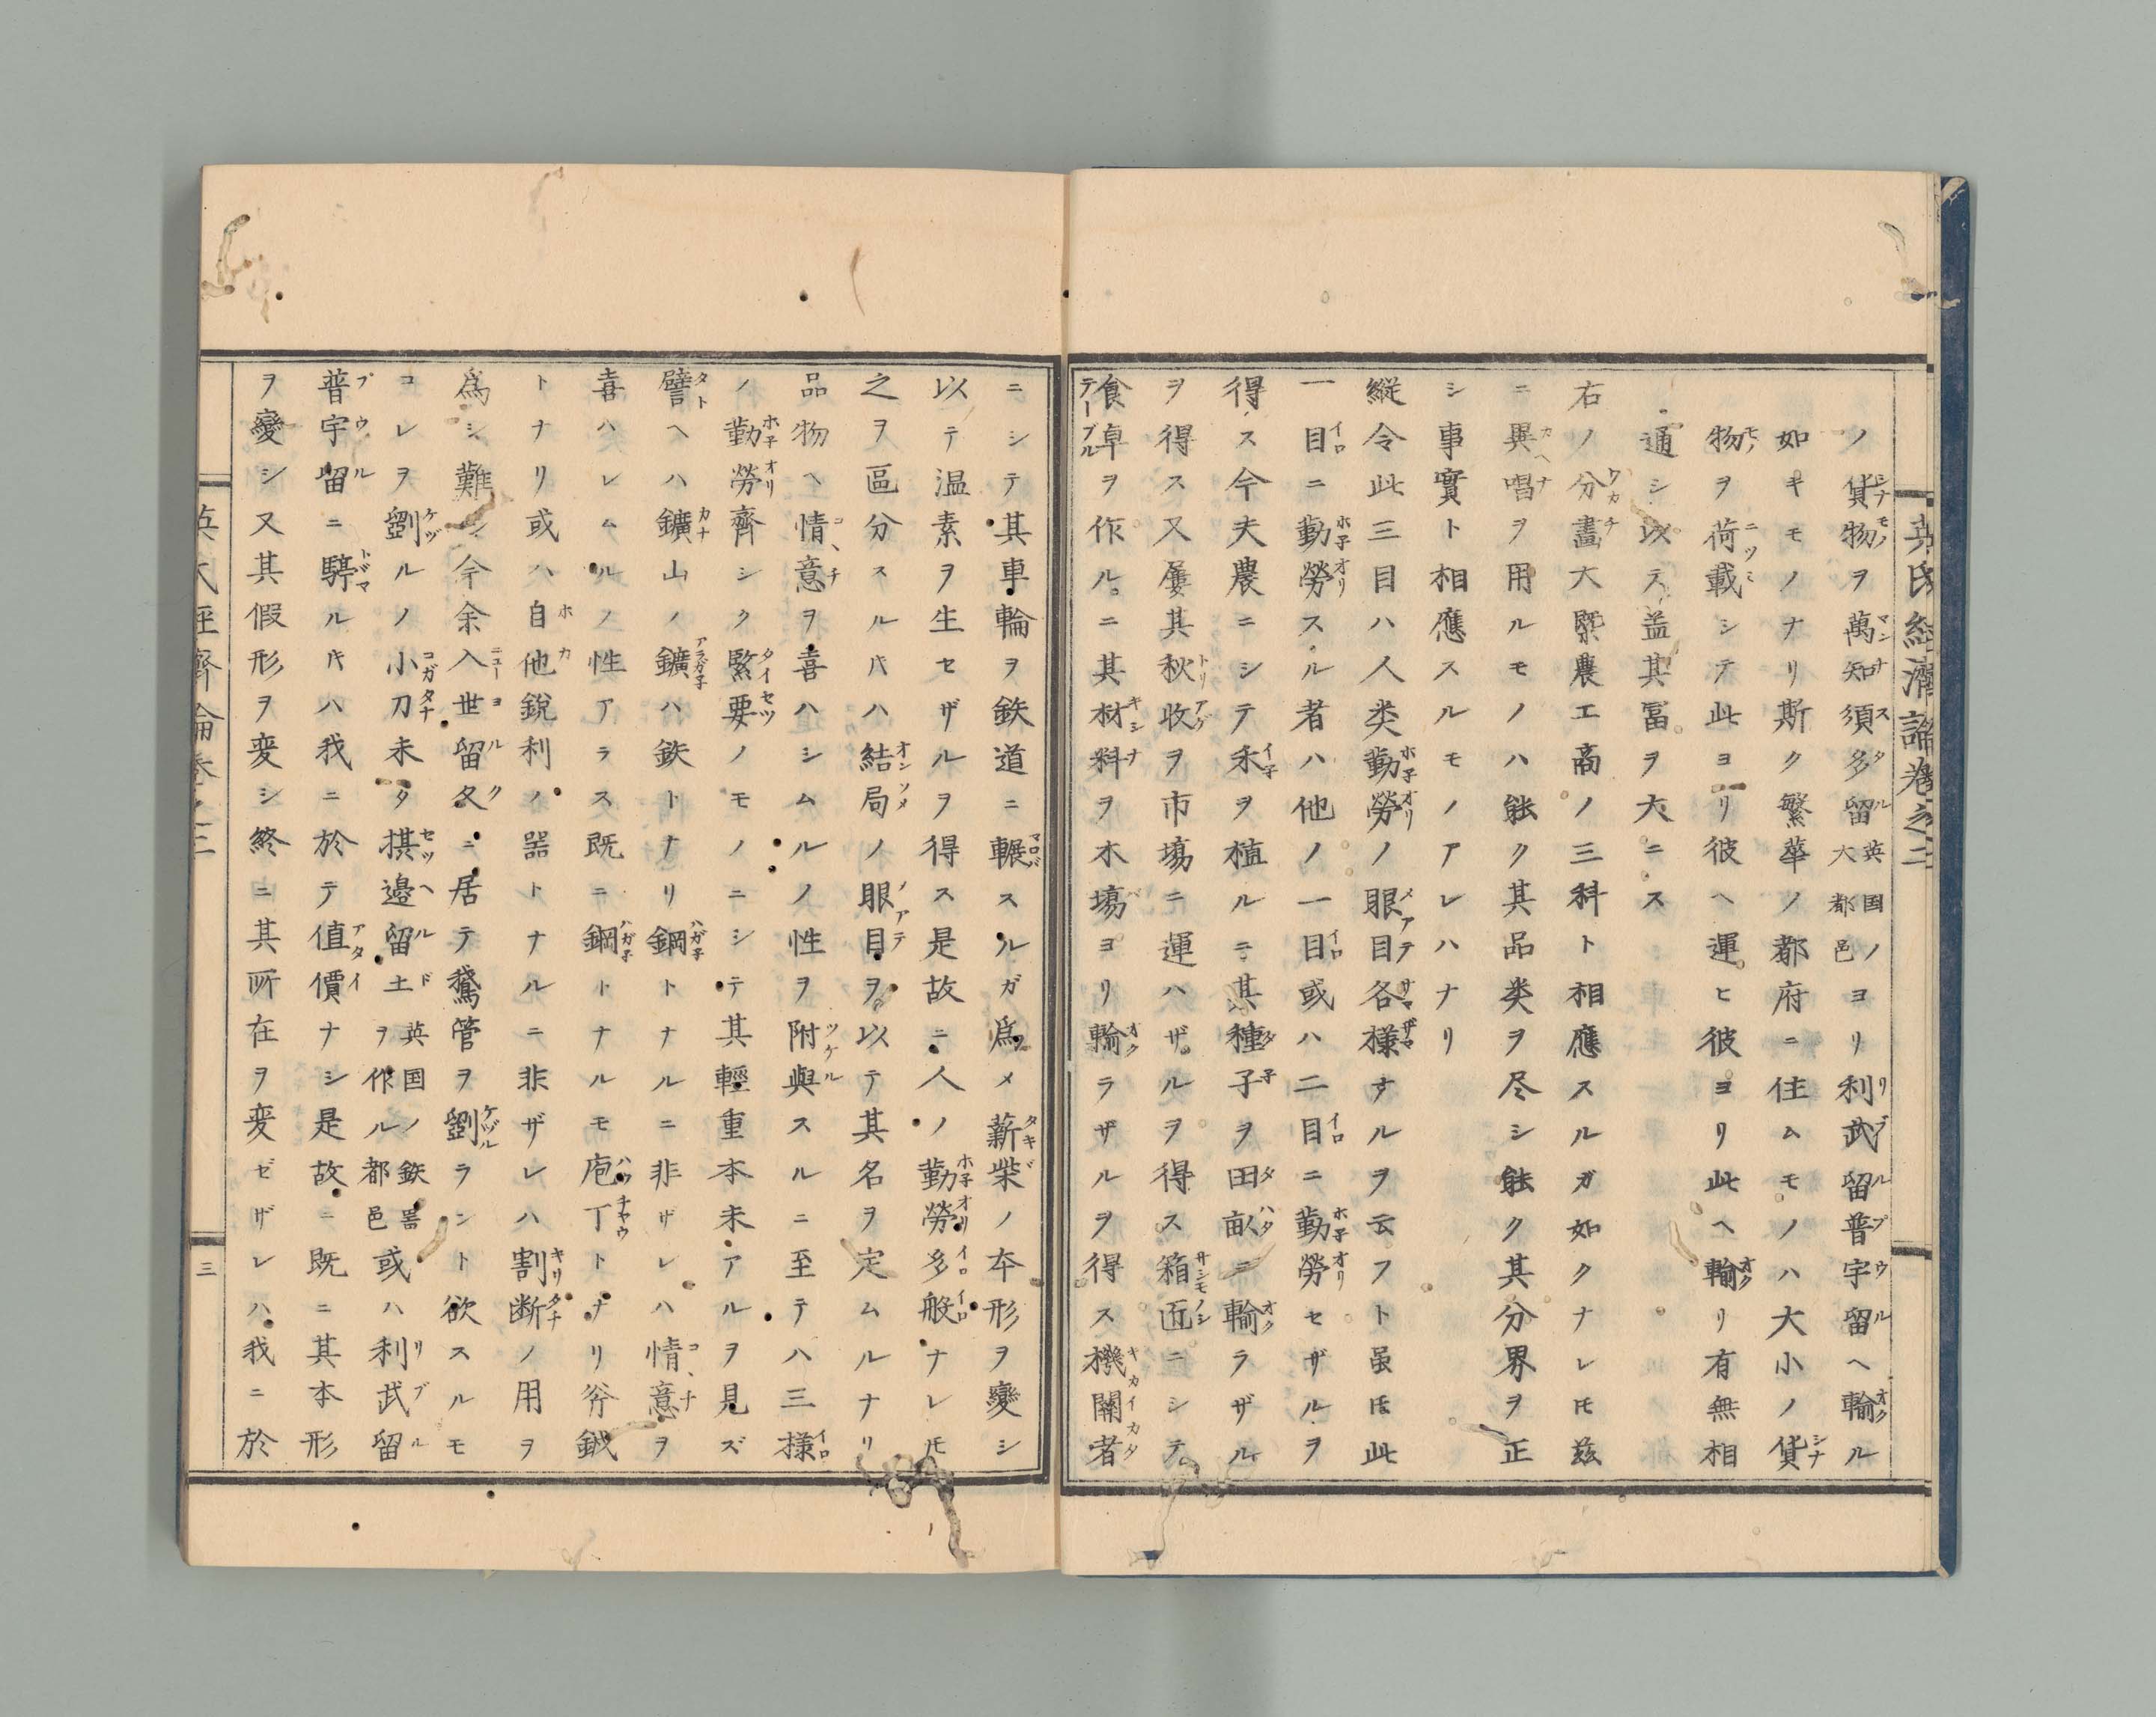 英氏經濟論卷之三
ノ貨物ヲ萬知須多留英国ノ大都邑ヨリ利武留普宇留ヘ輸ル
如キモノナリ斯ク繁華ノ都府ニ住ムモノハ大小ノ貨
物ヲ荷載シテ此ヨリ彼ヘ運ヒ彼ヨリ此ヘ輸リ有無相
通シ以テ益其冨ヲ大ニス
右ノ分畫大槩農工商ノ三科ト相應スルガ如クナレ𪜈茲
ニ異唱ヲ用ルモノハ能ク其品类ヲ尽シ能ク其分界ヲ正
シ事實ト相應スルモノアレハナリ
縦令此三目ハ人类勤勞ノ眼目各様ナルヲ云フト虽𪜈此
一目ニ勤勞スル者ハ他ノ一目或ハ二目ニ勤勞セザルヲ
得ス今夫農ニシテ禾ヲ植ルニ其種子ヲ田畝ニ輸ラザル
ヲ得ス又屡其秋收ヲ市塲ニ運ハザルヲ得ス箱匠ニシテ
食卓ヲ作ルニ其材料ヲ木塲ヨリ輸ラザルヲ得ス機關者
ニシテ其車輪ヲ鉄道ニ輾スルガ爲メ薪柴ノ夲形ヲ變シ
以テ温素ヲ生セザルヲ得ス是故ニ人ノ勤勞多般ナレ𪜈
之ヲ區分スルキハ結局ノ眼目ヲ以テ其名ヲ定ムルナリ
品物ヘ情意ヲ喜ハシムルノ性ヲ附與スルニ至テハ三様
ノ勤勞齊シク緊要ノモノニシテ其輕重本末アルヲ見ズ
譬ヘハ鑛山ノ鑛ハ鉄トナリ鋼トナルニ非ザレハ情意ヲ
喜ハレムルノ性アラス既ニ鋼トナルモ庖丁トナリ斧鉞
トナリ或ハ自他鋭利ノ器トナルニ非ザレハ割断ノ用ヲ
爲シ難シ今余入世留久ニ居テ鵞管ヲ劉ラント欲スルモ
コレヲ劉ルノ小刀未タ掑邉留土英国ノ鉄器ヲ作ル都邑或ハ利武留
普宇留ニ騲ルキハ我ニ於テ値價ナシ是故ニ既ニ其本形
ヲ變シ又其假形ヲ変シ終ニ其所在ヲ変ゼザレハ我ニ於
英氏經濟論卷之三
三